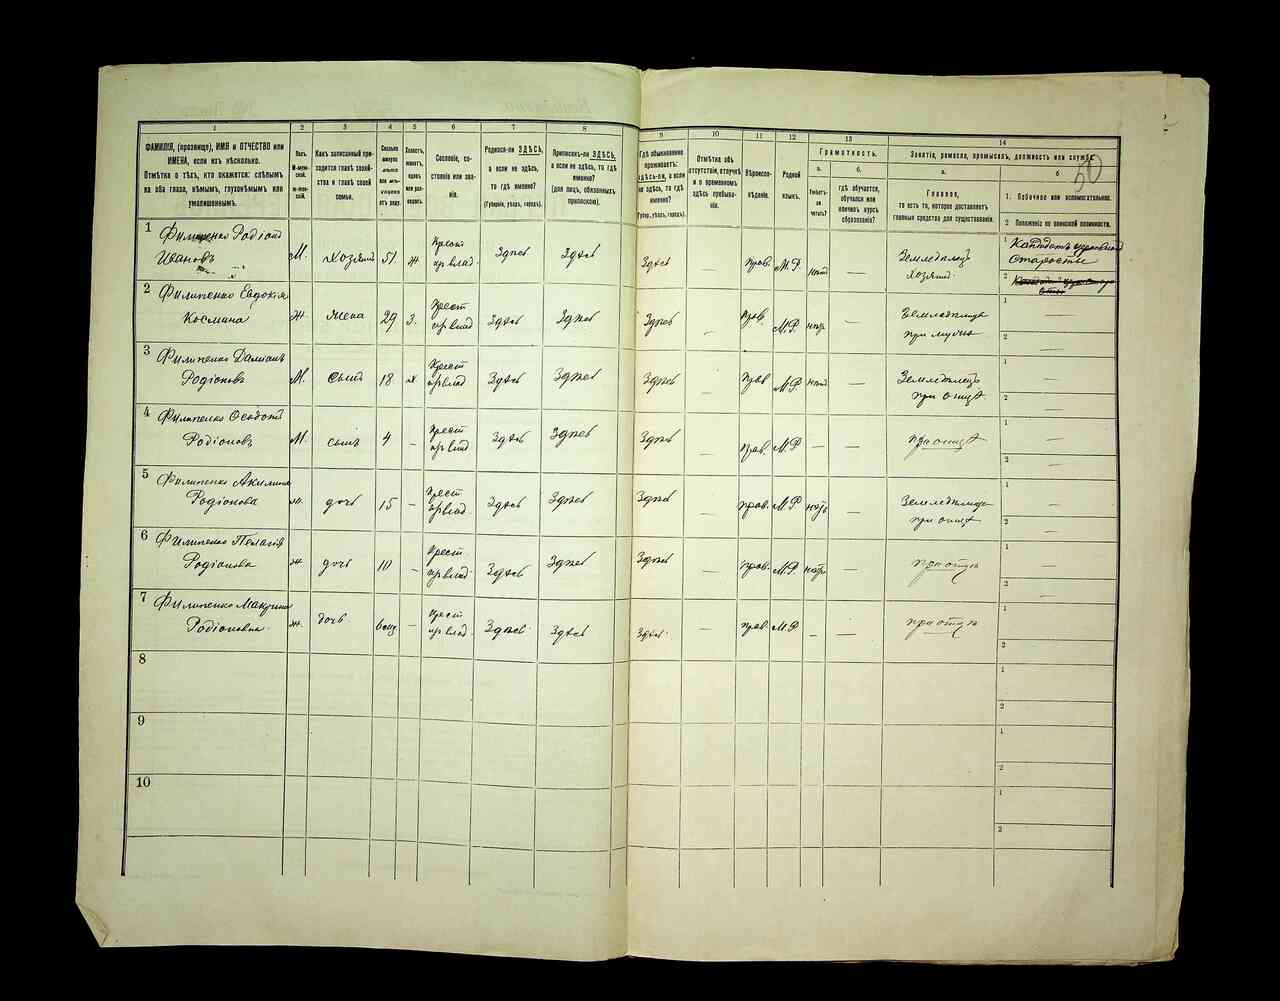 50
1
2
3
4
5
6
7
8
9
10
11
12
13
14
ФАМИЛІЯ, (прозвище), ИМЯ и ОТЧЕСТВО или
ИМЕНА, если ихъ нѣсколько.
Отмѣтка о тѣхъ, кто окажется: слѣпымъ
на оба глаза, нѣмымъ, глухонѣмымъ или
умалишеннымъ.
Полъ.
Какъ записанный при-
ходится главѣ хозяй-
ства и главѣ своей
семьи.
Сословіе, со-
стояніе или зва-
ніе.
Родился-ли ЗДѢСЬ,
а если не здѣсь,
то гдѣ именно?
(Губернія, уѣздъ, городъ).
Приписанъ-ли ЗДѢСЬ,
а если не здѣсь, то гдѣ
именно?
(для лицъ, обязанныхъ
припискою).
Гдѣ обыкновенно
проживаетъ:
здѣсь-ли, а если
не здѣсь, то гдѣ
именно?
(Губер., уѣздъ, городъ).
Отмѣтка объ
отсутствіи, отлучкѣ
и о временномъ
здѣсь пребыва-
ніи.
Вѣроиспо-
вѣданіе.
Родной
языкъ.
Грамотность.
а.
Умѣетъ-
ли
читать?
б.
гдѣ обучается,
обучался или
кончилъ курсъ
образованія?
Занятіе, ремесло, промыселъ, должность или служба.
а.
Главное,
то есть то, которое доставляетъ
главныя средства для существованія.
б
1. Побочное или вспомогательное.
2 Положеніе по воинской повинности.
1 Филипенко Родіонъ
Ивановъ
М. хозяинъ 51 ж Крест. Здѣсь Здѣсь Здѣсь — прав. М.Р. нѣтъ — Земледѣлецъ
хозяинъ
1 Кандидатъ
Старосты
2
2 Филипенко Евдокія
Космина
ж. жена 29 З. Крест. Здѣсь Здѣсь Здѣсь — прав. М.Р. нѣтъ — Земледѣлица
при мужѣ
1 —
2 —
3 Филипенко Даміанъ
Родіоновъ
М. сынъ 18 х. Крест. Здѣсь Здѣсь Здѣсь — прав М.Р нѣтъ — Земледѣлецъ
при отцѣ
1 —
2 —
4 Филипенко Ѳеодотъ
Родіоновъ
М. сынъ 4 – Крест. Здѣсь Здѣсь Здѣсь — прав. М.Р — — при отцѣ
1 —
2 —
5 Филипенко Акилина
Родіонова
ж. дочь 15 – Крест. Здѣсь Здѣсь Здѣсь — прав. М.Р нѣтъ — Земледѣлица
при отцѣ
1 —
2 —
6 Филипенко Пелагія
Родіонова
ж. дочь 10 – Крест. Здѣсь Здѣсь Здѣсь — прав. М.Р нѣтъ — при отцѣ
1 —
2 —
7 Филипенко Макрина
Родіоновна
ж. дочь 6 – Крест. Здѣсь Здѣсь Здѣсь — прав. М.Р. — — при отцѣ
1
2
8
1
2
9
1
2
10
1
2